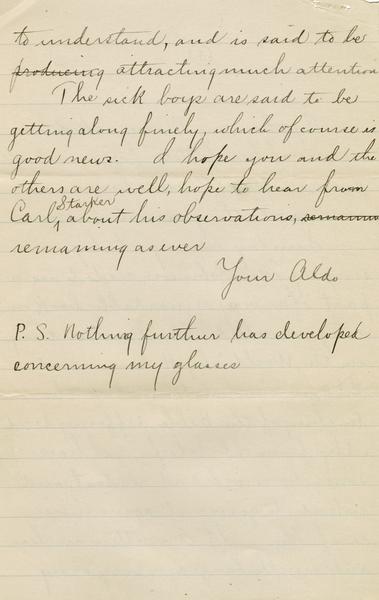 to understand, and is said to be
producing attracting much attention
The sick boys are said to be
getting along finely, which of course is
good news. I hope you and the
others are well, hope to hear from
Starker
Carl, about his observations, remaining
remaining as ever
Your Aldo
P. S. Nothing further has developed
concerning my glasses